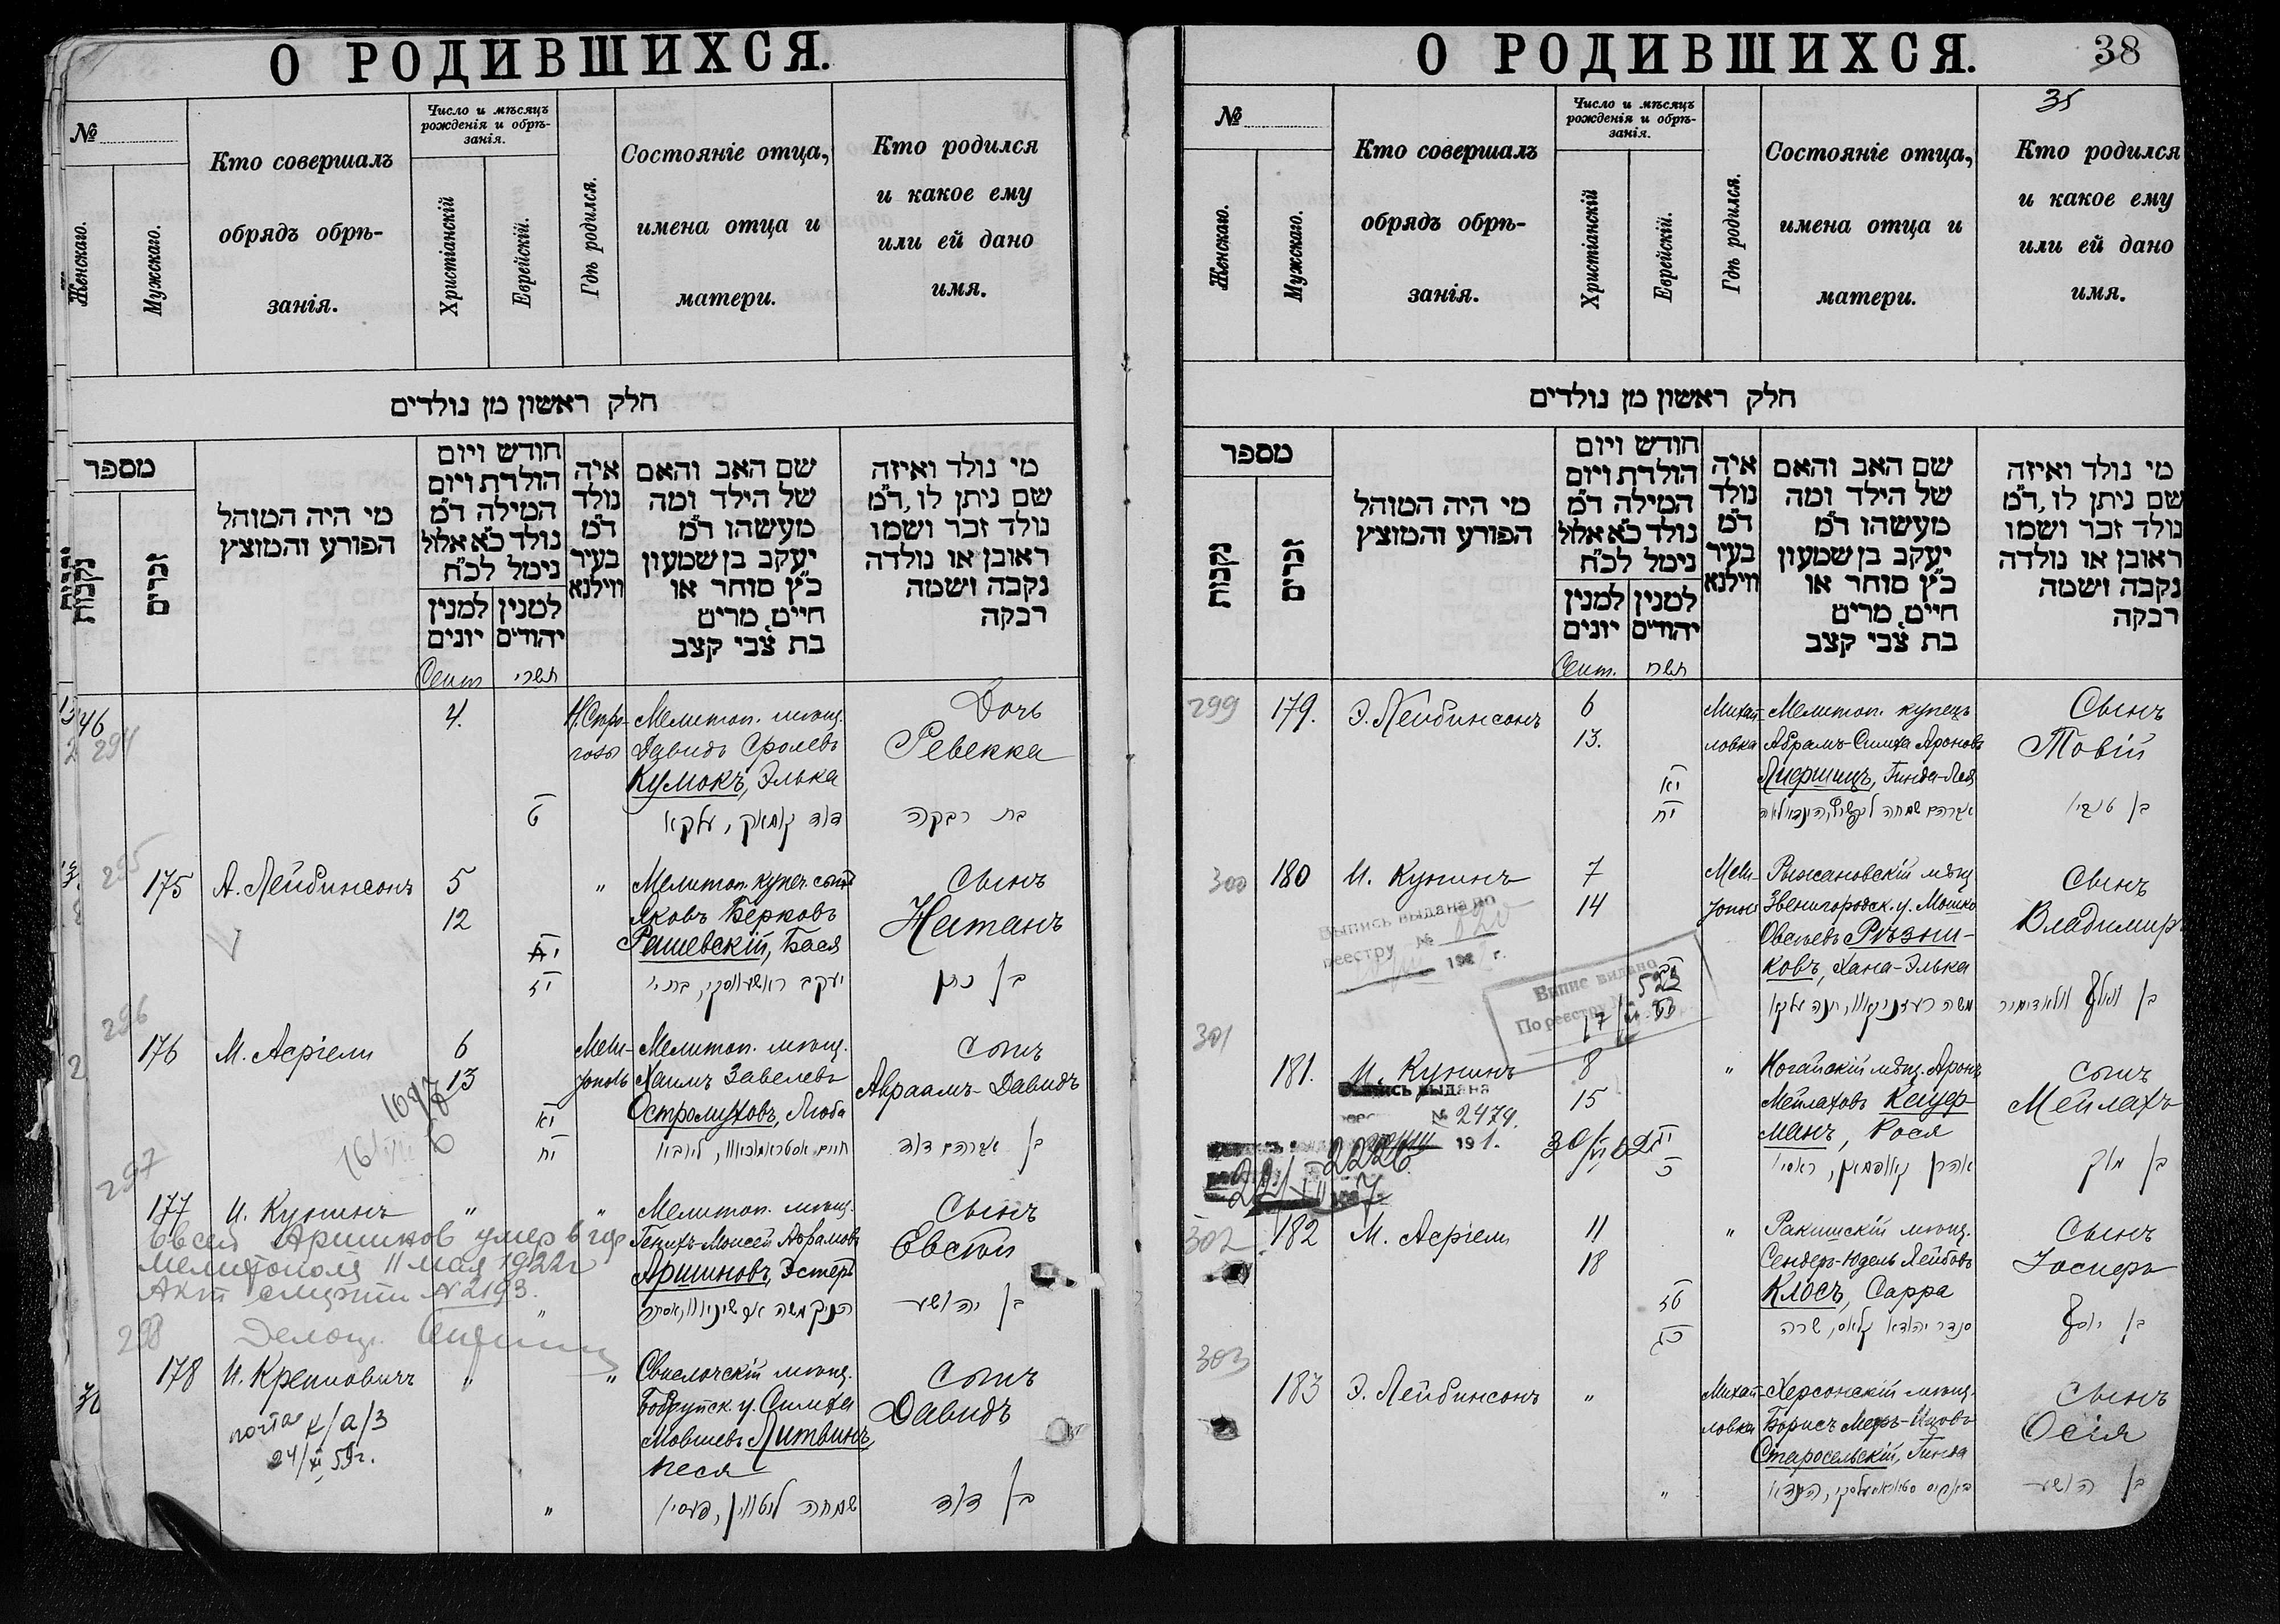 О РОДИВШИХСЯ.
№
Женскаго.
Мужскаго.
Кто совершалъ
обрядъ обрѣ-
занія.
Число и мѣсяцъ
рожденія и обрѣ-
занія.
Христіанскій
Еврейскій.
Гдѣ родился.
Состояніе отца,
имена отца и
матери.
Кто родился
и какое ему
или ей дано
имя.
חלק ראשון מן נולדים
מספר
נקבות
זכרים
מי היה המוהל
הפורע והמוצץ
חודש ויום
הולדת ויום
המילה ד״מ
נולד כ״א אלול
נימל לכ״ח
למנין
יונים
למנין
יהודים
איה
נולד
ד״מ
בעיר
ווילנא
שם האב והאם
של הילד ומה
מעשהו ד״מ
יעקב בן שמעון
כ״ץ סוחר או
חיים, מרים
בת צבי קצב
מי נולד ואיזה
שם ניתן לו, ד״מ
נולד זכר ושמו
ראובן או נולדה
נקבה ושמה
רבקה
Сент
תשרי
46
294
4.
Мелитоп. мѣщ.
Давидъ Сролевъ
Кумокъ, Элька
Дочь
Ревекка
ט
דוד קומאק, עלקא
בת רבקה
295
175
А. Лейбинсонъ
5
12
"
Мелитоп. купеч. сынъ
Яковъ Берковъ
Рашевскій, Бася
Сынъ
Натанъ
י
יז
בן נתן
296
176
М. Асріели
6
13
Мели-
тополь
Мелитоп. мѣщ.
Хаимъ Завелевъ
Остромуховъ, Люба
Сынъ
Авраамъ-Давидъ
יא
יח
בן אברהם דוד
297
177
И. Кунинъ
"
"
Мелитоп. мѣщ.
Генихъ-Моисей Абрамовъ
Аршиновъ, Эстеръ
Сынъ
Евсей
Евсей Аршинов умер в гор
Мелитополя 11 мая 1922 г
Акт смерти № 2193.
"
בן יהושע
298
178
И. Крепновичъ
"
"
Свислочскій мѣщ.
Бобруйск. у. Симха
Мовшевъ Литвинъ,
Песя
Сынъ
Давидъ
к/а/3
24/XI 59г.
"
שמחה ליטווין, פעסיא
בן דוד
О РОДИВШИХСЯ.
38
35
№
Женскаго.
Мужскаго.
Кто совершалъ
обрядъ обрѣ-
занія.
Число и мѣсяцъ
рожденія и обрѣ-
занія.
Христіанскій
Еврейскій.
Гдѣ родился.
Состояніе отца,
имена отца и
матери.
Кто родился
и какое ему
или ей дано
имя.
חלק ראשון מן נולדים
מספר
נקבות
זכרים
מי היה המוהל
הפורע והמוצץ
חודש ויום
הולדת ויום
המילה ד״מ
נולד כ״א אלול
נימל לכ״ח
למנין
יונים
למנין
יהודים
איה
נולד
ד״מ
בעיר
ווילנא
שם האב והאם
של הילד ומה
מעשהו ד״מ
יעקב בן שמעון
כ״ץ סוחר או
חיים, מרים
בת צבי קצב
מי נולד ואיזה
שם ניתן לו, ד״מ
נולד זכר ושמו
ראובן או נולדה
נקבה ושמה
רבקה
Сент.
תשרי
299
179.
Э. Лейбинсонъ
6
13.
Михай-
ловка
Мелитоп. купецъ
Абрамъ-Симха Ароновъ
Лифшицъ, Гинда-Лея
Сынъ
Товій
יא
יח
בן טוביה
300
180
И. Кунинъ
7
14
Мели-
тополь
Рыжановскій мѣщ.
Звенигородск. у. Мошко
Овсѣевъ Рѣзни-
ковъ, Хана-Элька
Сынъ
Владимиръ
Выпись выдана по
реестру №
Випис видано
По реестру № 523
בן וואלף וולאדימיר
301
181.
И. Кунинъ
8
15
"
Ногайскій мѣщ. Аронъ
Мейлаховъ Кауф-
манъ, Рося
Сынъ
Мейлахъ
Выпись выдана
№ 2479.
191.
2226
אהרן קויפמאן, ראסיא
בן מלך
302
182
М. Асріели
11
18
"
Ракишскій мѣщ.
Сендеръ-Юдель Лейбовъ
Клосъ, Сарра
Сынъ
Іосифъ
טז
כג
סנדר יהודא קלאס, שרה
בן יוסף
303
183
Э. Лейбинсонъ
"
Михай-
ловка
Херсонскій мѣщ.
Борисъ Меръ-Ицовъ
Старосельскій, Гинда
Сынъ
Осія
"
בן הושע